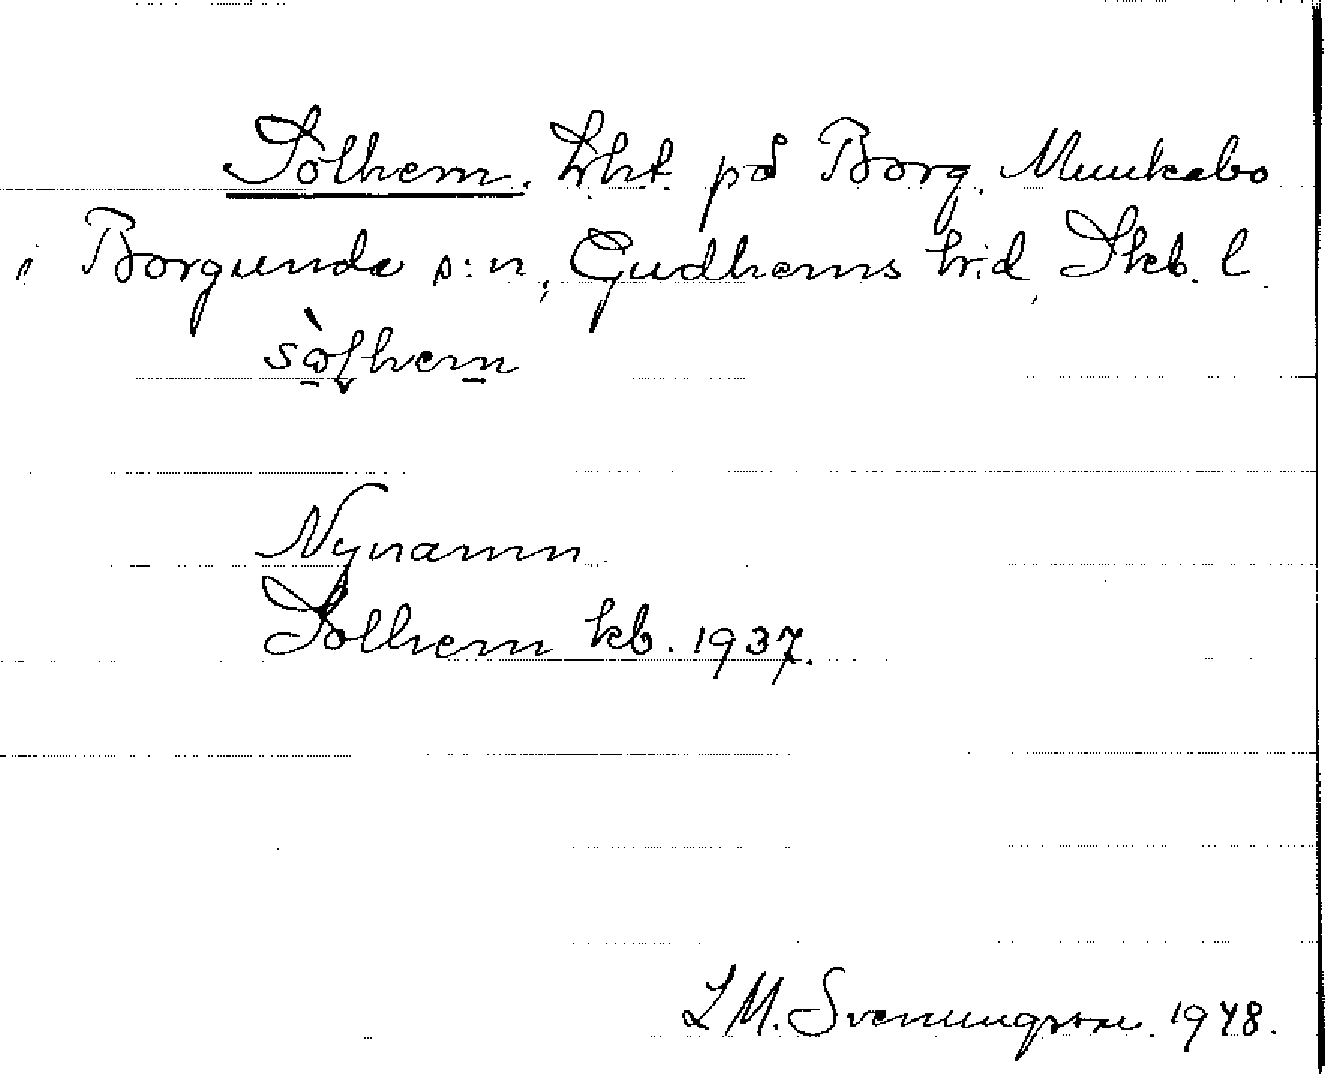 Solhem. Lht. på Borg. Munkabo
i Borgunda s:n, Gudhems hd, Skb. l.
sòlhem
Nynamn
Solhem kb. 1937.
L M. Svenungsson. 1948.